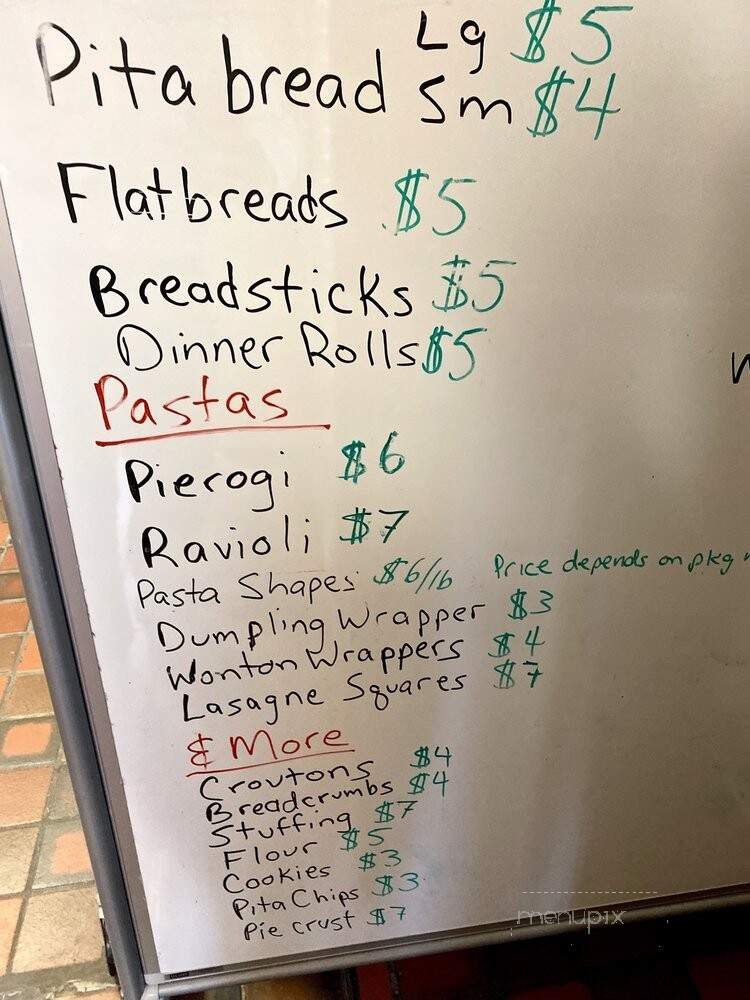 Pita bread Lg $5
Sm $4
Flatbreads $5
Breadsticks $5
Dinner Rolls $5
Pastas
Pierogi $6
Ravioli $7
Pasta Shapes $6/lb Price depends on pkg
Dumpling Wrapper $3
Wonton Wrappers $4
Lasagne Squares $7
& More
Croutons $4
Breadcrumbs $4
Stuffing $7
Flour $5
Cookies $3
Pita Chips $3
Pie crust $7
menupix